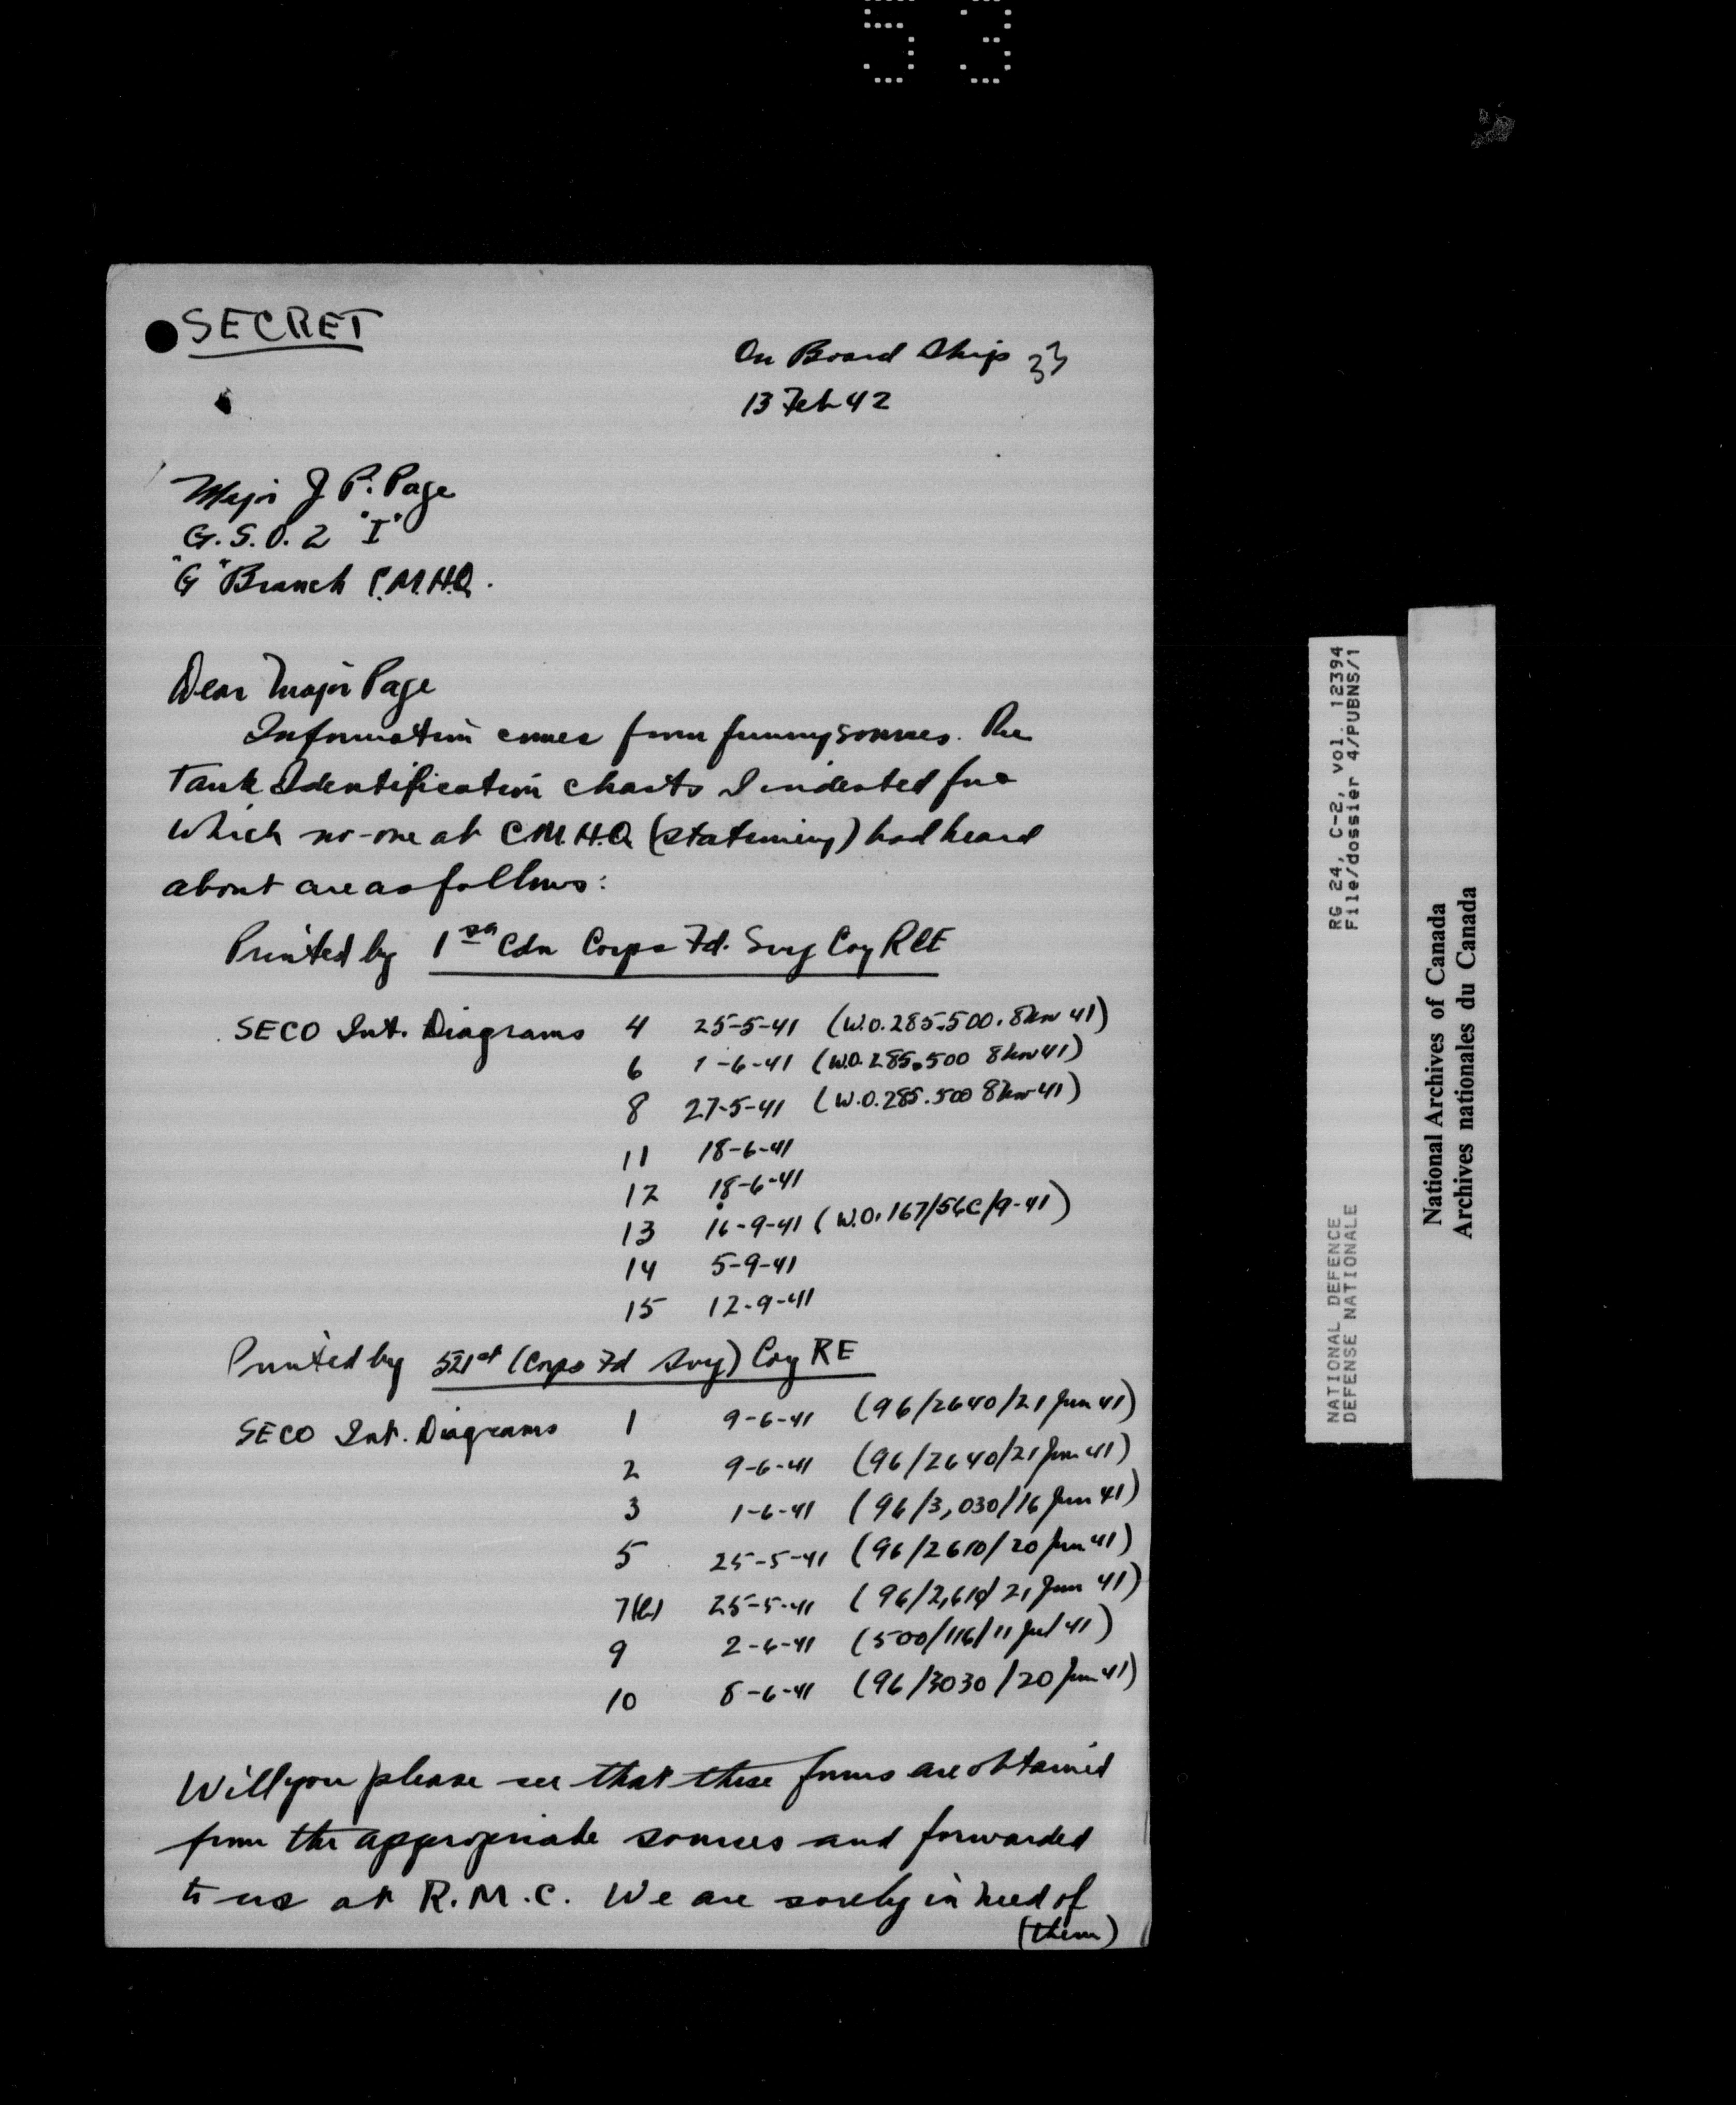 53
SECRET
On Board Ship 33
13 Feb 42
Major J P. Page
G.S.O. 2 "I"
"G" Branch C.M.H.Q.
Dear Major Page
Information comes from funny sources. The
Tank Identification charts I indented for &
which no-one at C.M.H.Q (stationery) had heard
about are as follows:
Printed by 1st Cdn Corps Fd. Svy Coy RCE
SECO Int. Diagrams 4 25-5-41 (W.O. 285.500. 8 41)
6 1-6-41 (W.O. 285.500 8 41)
8 27-5-41 (W.O. 285.500 8 41)
11 18-6-41
12 18-6-41
13 16-9-41 (W.O. 167/56C/9-41)
14 5-9-41
15 12-9-41
Printed by 521st (Corps Fd Svy) Coy RE
SECO Int. Diagrams 1 9-6-41 (96/2640/21 Jun 41)
2 9-6-41 (96/2640/21 Jun 41)
3 1-6-41 (96/3,030/16 Jun 41)
5 25-5-41 (96/2610/20 Jun 41)
25-5-41 (96/2,610/21 Jun 41)
9 2-6-41 (500/116/11 Jul 41)
10 8-6-41 (96/3030/20 Jun 41)
Will you please see that these forms are obtained
from the appropriate sources and forwarded
to us at R.M.C. We are sorely in need of
(them)
NATIONAL DEFENCE RG 24, C-2, vol. 12394
DEFENSE NATIONALE File/dossier 4/PUBNS/1
National Archives of Canada
Archives nationales du Canada